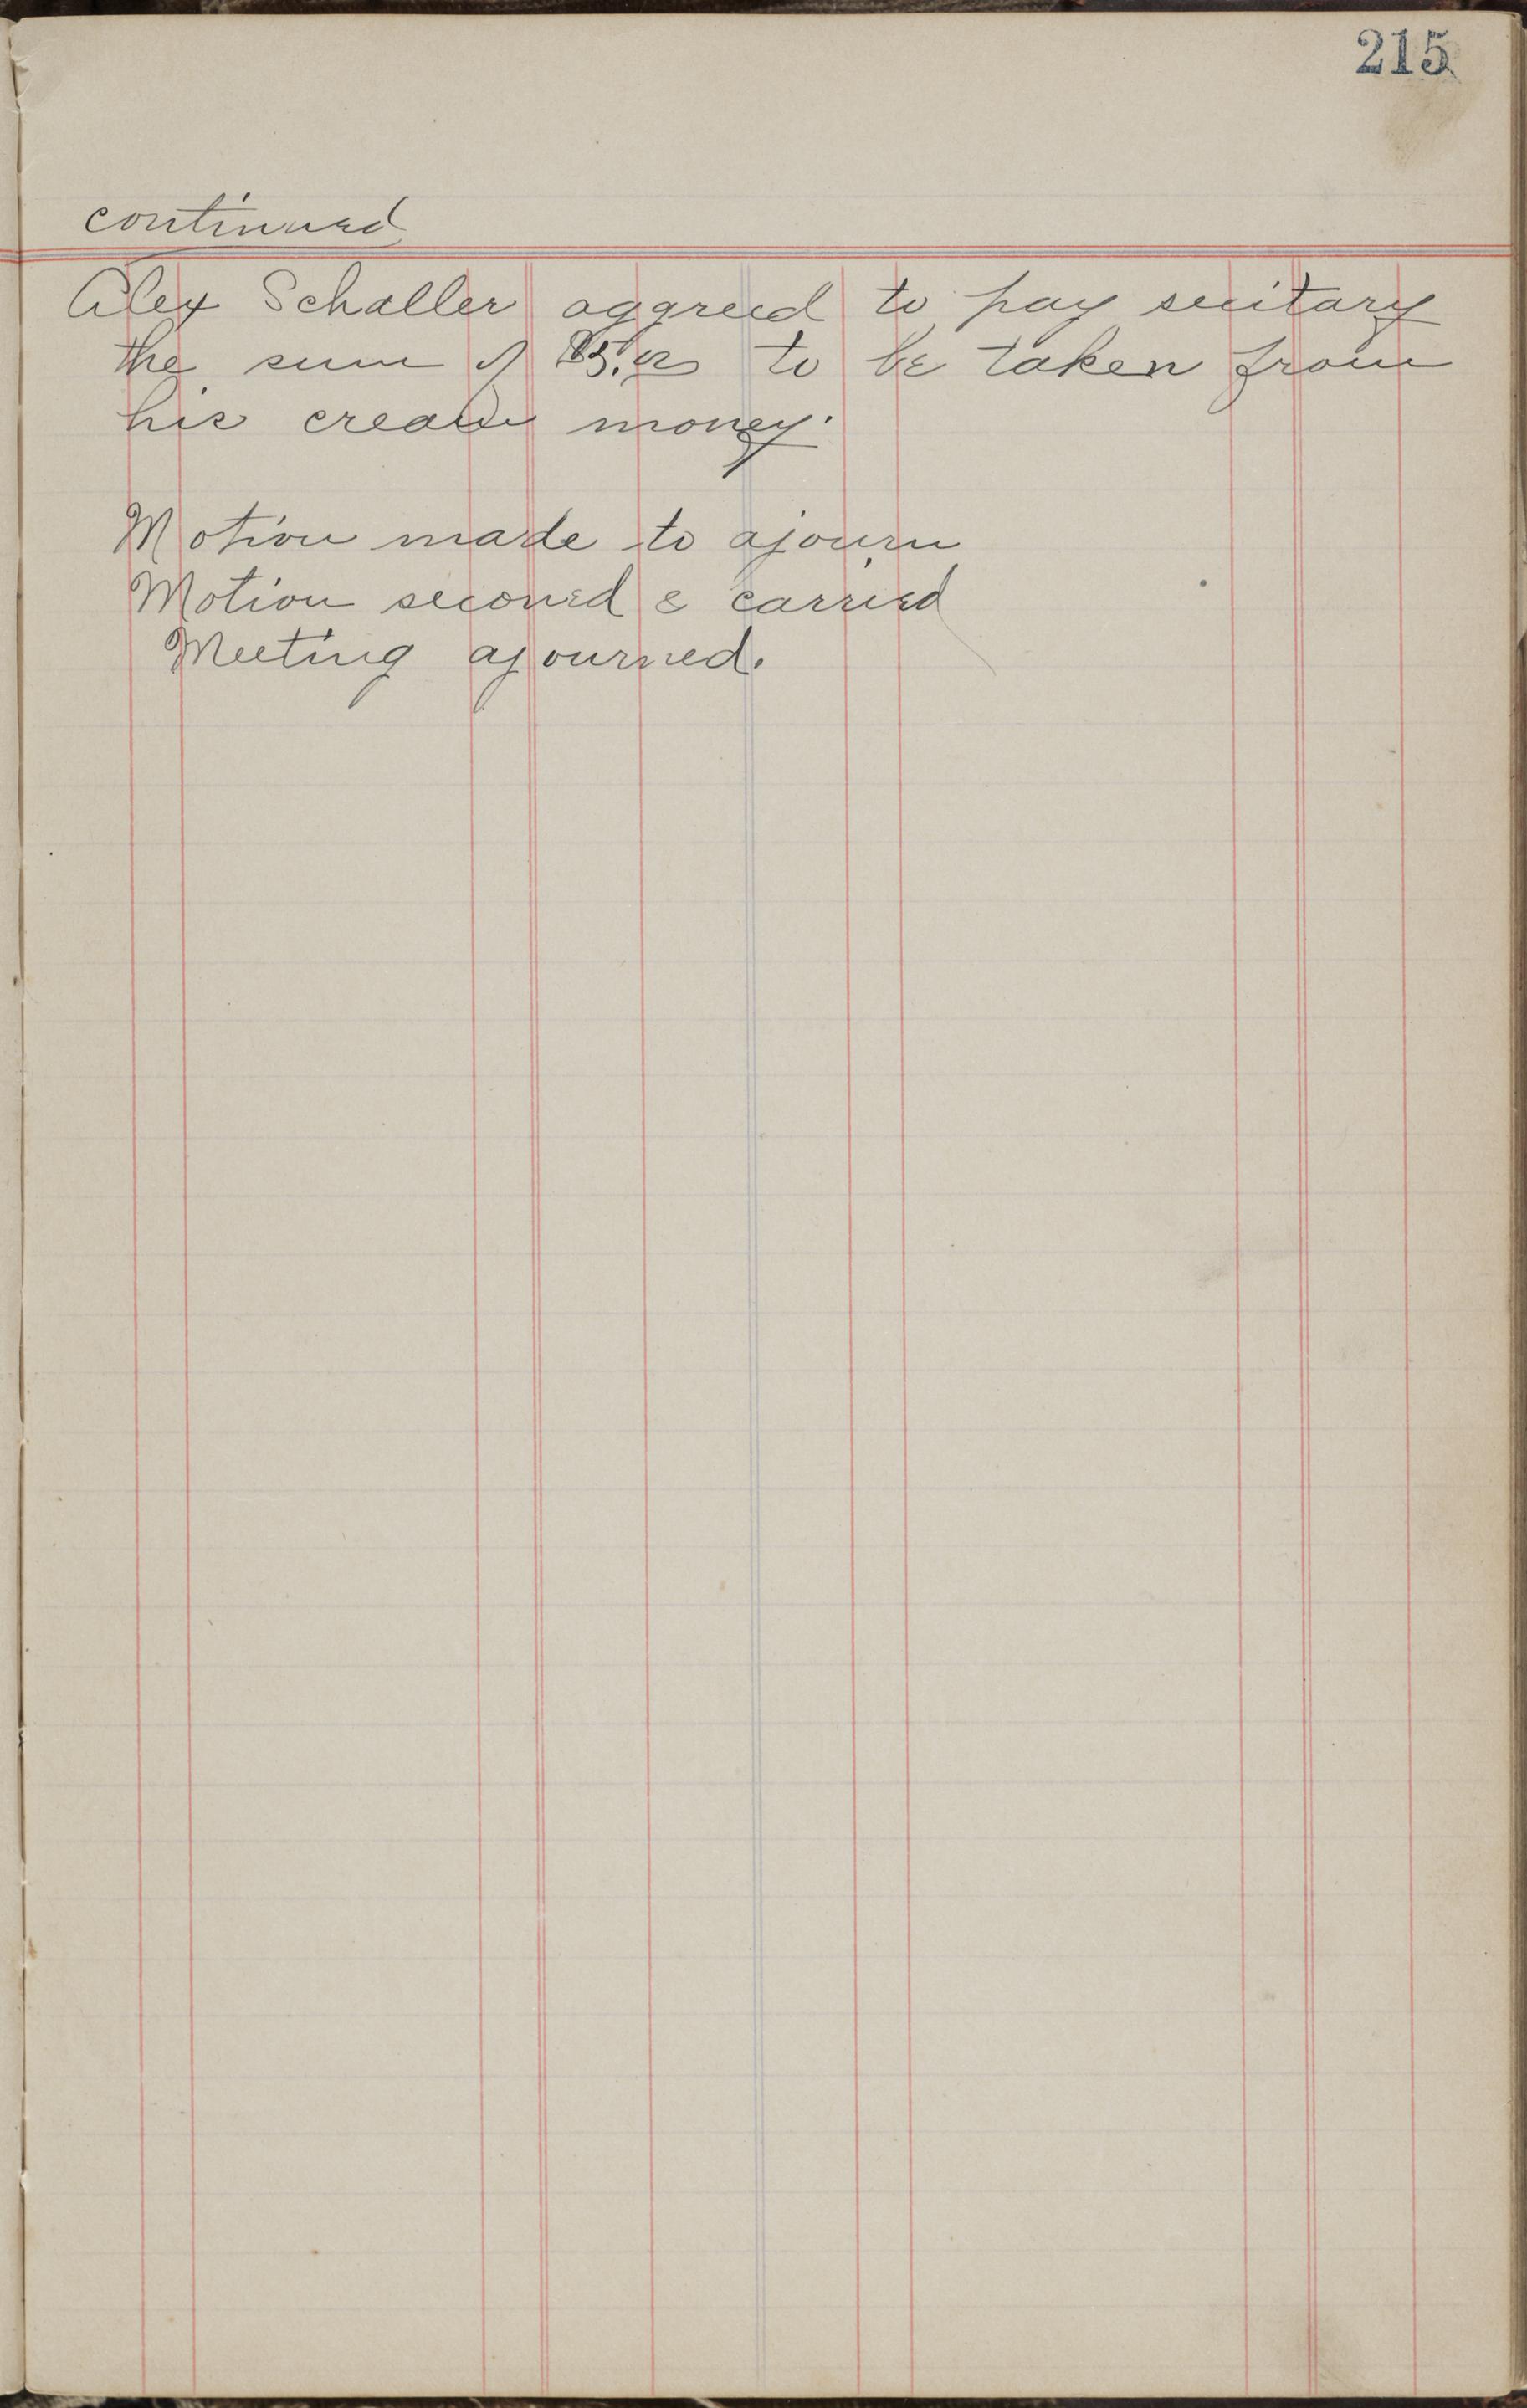 215
continued
Alex Schaller aggreed to pay secitary
the sum of to be taken from
his cream money.
Motion made to ajourn
Motion seconed & carried
Meeting ajourned.